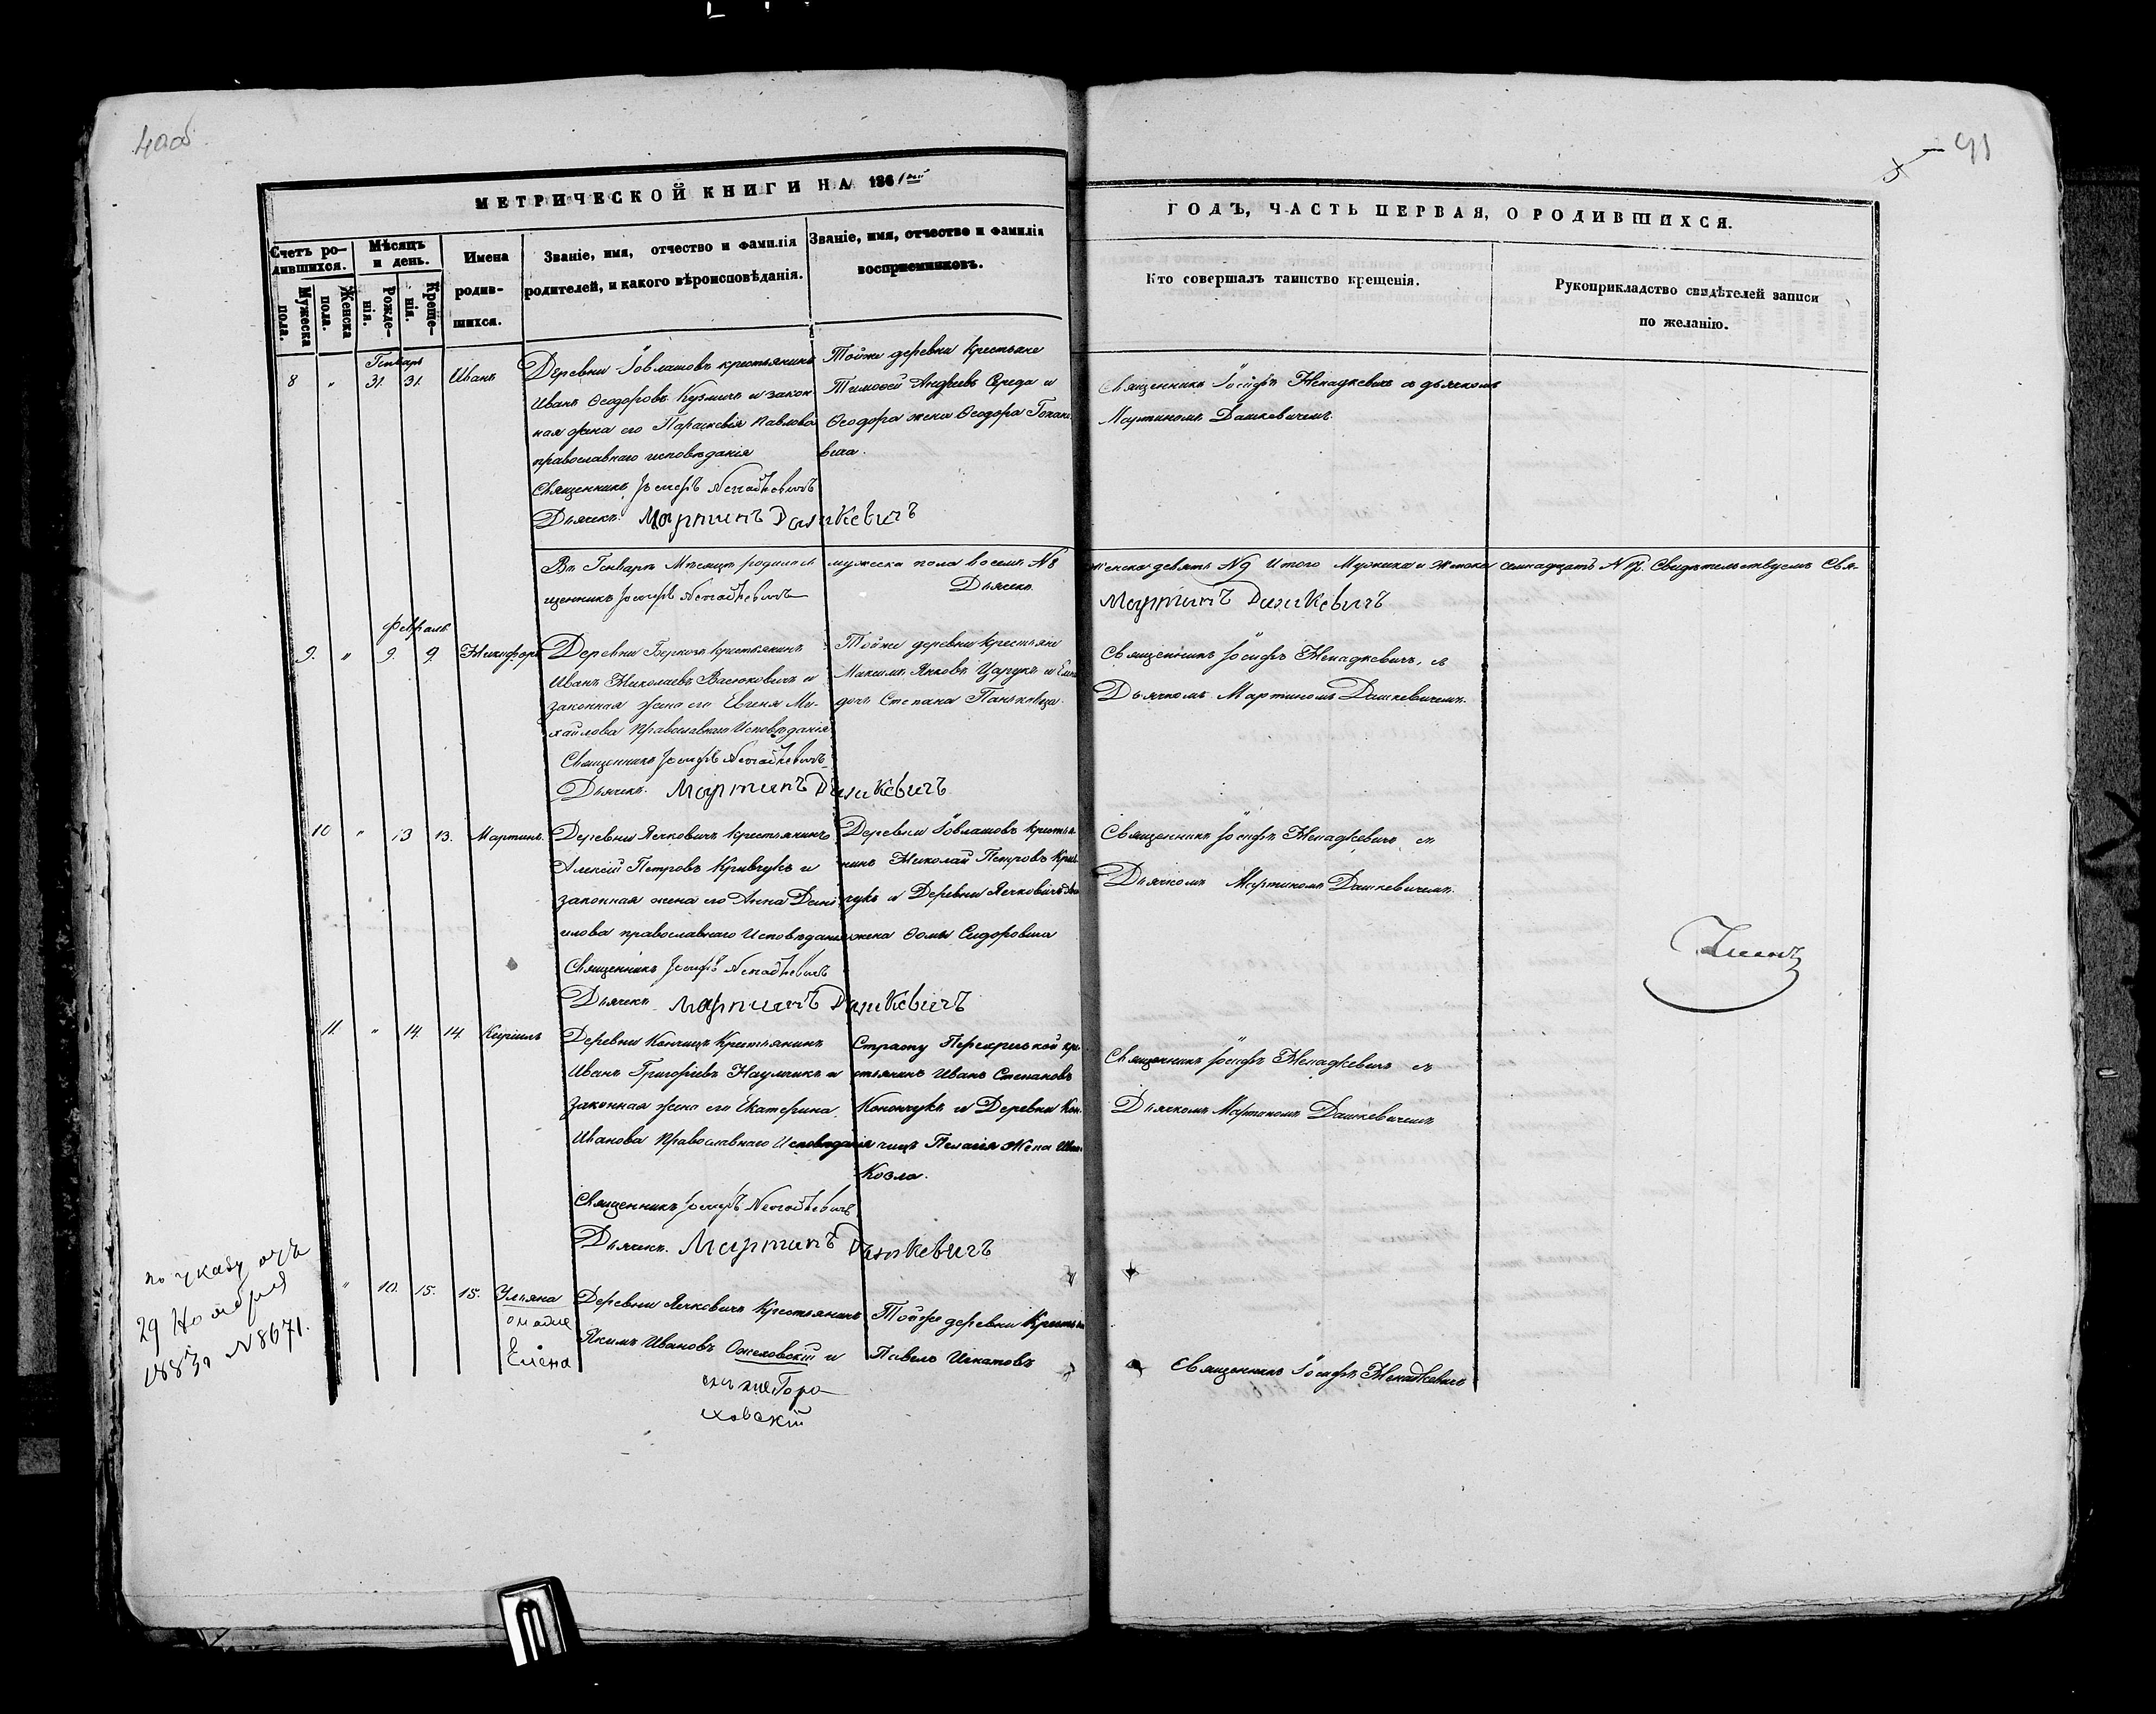 40об.
МЕТРИЧЕСКОЙ КНИГИ НА 1861
Счетъ ро-
дившихся.
Мужеска пола.
Женска пола.
Мѣсяцъ
и день.
Рожде-
нія.
Креще-
нія.
Имена
родив-
шихся.
Званіе, имя, отчество и фамилія
родителей, и какого вѣроисповѣданія.
Званіе, имя, отчество и фамилія
воспріемниковъ.
Генварь
8 " 31. 31. Иванъ
Деревни Іовлашовъ крестьянинъ
Иванъ Ѳеодоровъ Кузмичъ и закон
ная жена его Параскевія Павлова
православнаго исповѣданія
Священникъ Іосифъ Ненадкевичъ
Дьячекъ Мартинъ Дашкевичъ
Тойже деревни Крестьяне
Тимоѳей Андреевъ Середа и
Ѳеодора жена Ѳеодора
вича.
Въ Генварѣ Мѣсяцѣ родилось мужеска пола восемь N 8
щенникъ Іосифъ Ненадкевичъ Дьячекъ
Февраль
9. " 9. 9. Никифоръ
Деревни крестьянинъ
Иванъ Николаевъ Васюковичъ и
законная жена его Евгенія Ми-
хайлова Православнаго Исповѣданія
Священникъ Іосифъ Ненадкевичъ
Дьячекъ Мартинъ Дашкевичъ
Тойже деревни крестьяне
Максимъ Янковъ Царукъ и
дочь Степана Паньковца
10 " 13 13. Мартинъ
Деревни Ячковичъ Крестьянинъ
Алексій Петровъ Кривчукъ и
законная жена его Анна Дани
илова православнаго Исповѣданія
Священникъ Іосифъ Ненадкевичъ
Дьячекъ Мартинъ Дашкевичъ
Деревни Іовлашовъ крестья
нинъ Николай Петровъ Крив
чукъ и Деревни Ячковичъ
жена Ѳомы Сидоровича
11. " 14. 14. Кириллъ
Деревни Кончицъ Крестьянинъ
Иванъ Григоріевъ Наумчикъ и
Законная жена его Екатерина
Иванова Православнаго Исповѣданія
Священникъ Іосифъ Ненадкевичъ
Дьячекъ. Мартинъ Дашкевичъ
кре
стьянинъ Иванъ Степановъ
Конончукъ и Деревни Кон
чицъ Пелагія Жена Ивана
Козла.
по указу отъ
29 Ноября
1883 г N 8671.
" 10. 15. 15. Ульяна
онаже
Елена
Деревни Ячковичъ Крестьянинъ
Якимъ Ивановъ Ожеховскій и
онъ же Горо
ховскій
Тойже деревни Крестья
Павелъ Игнатовъ
91
ГОДЪ, ЧАСТЬ ПЕРВАЯ, О РОДИВШИХСЯ.
Кто совершалъ таинство крещенія.
Рукоприкладство свидѣтелей записи
по желанію.
Священникъ Іосифъ Ненадкевичъ съ дьячкомъ
Мартиномъ Дашкевичемъ.
женска девять N 9 Итого Мужска и Женска семнадцать N 17. Свидѣтельствуемъ Свя-
Мартинъ Дашкевичъ
Священникъ Іосифъ Ненадкевичъ, съ
Дьячкомъ Мартиномъ Дашкевичемъ.
Священникъ Іосифъ Ненадкевичъ съ
Дьячкомъ Мартиномъ Дашкевичемъ.
Священникъ Іосифъ Ненадкевичъ съ
Дьячкомъ Мартиномъ Дашкевичемъ
Священникъ Іосифъ Ненадкевичъ